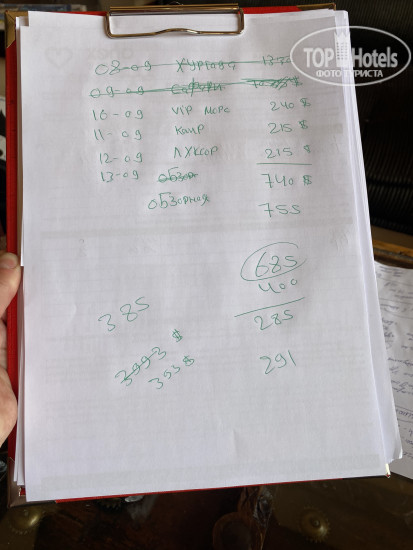 TOP Hotels
ФОТО ТУРИСТА
08-09 ХУРГАДА
09-09
10-09 VIP МОРЕ 240 $
11-09 КАИР 215 $
12-09 ЛУКСОР 215 $
13-09 ОБЗОР 740 $
ОБЗОРНАЯ 755
685
400
385 285
3993 $
393 $ 291